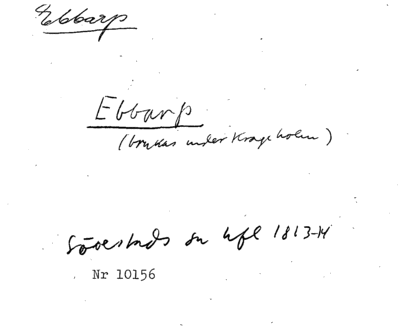 Ebbarp
Ebbarp
(brukas under Krageholm)
Sövestads sn hfl 1813-14
Nr 10156